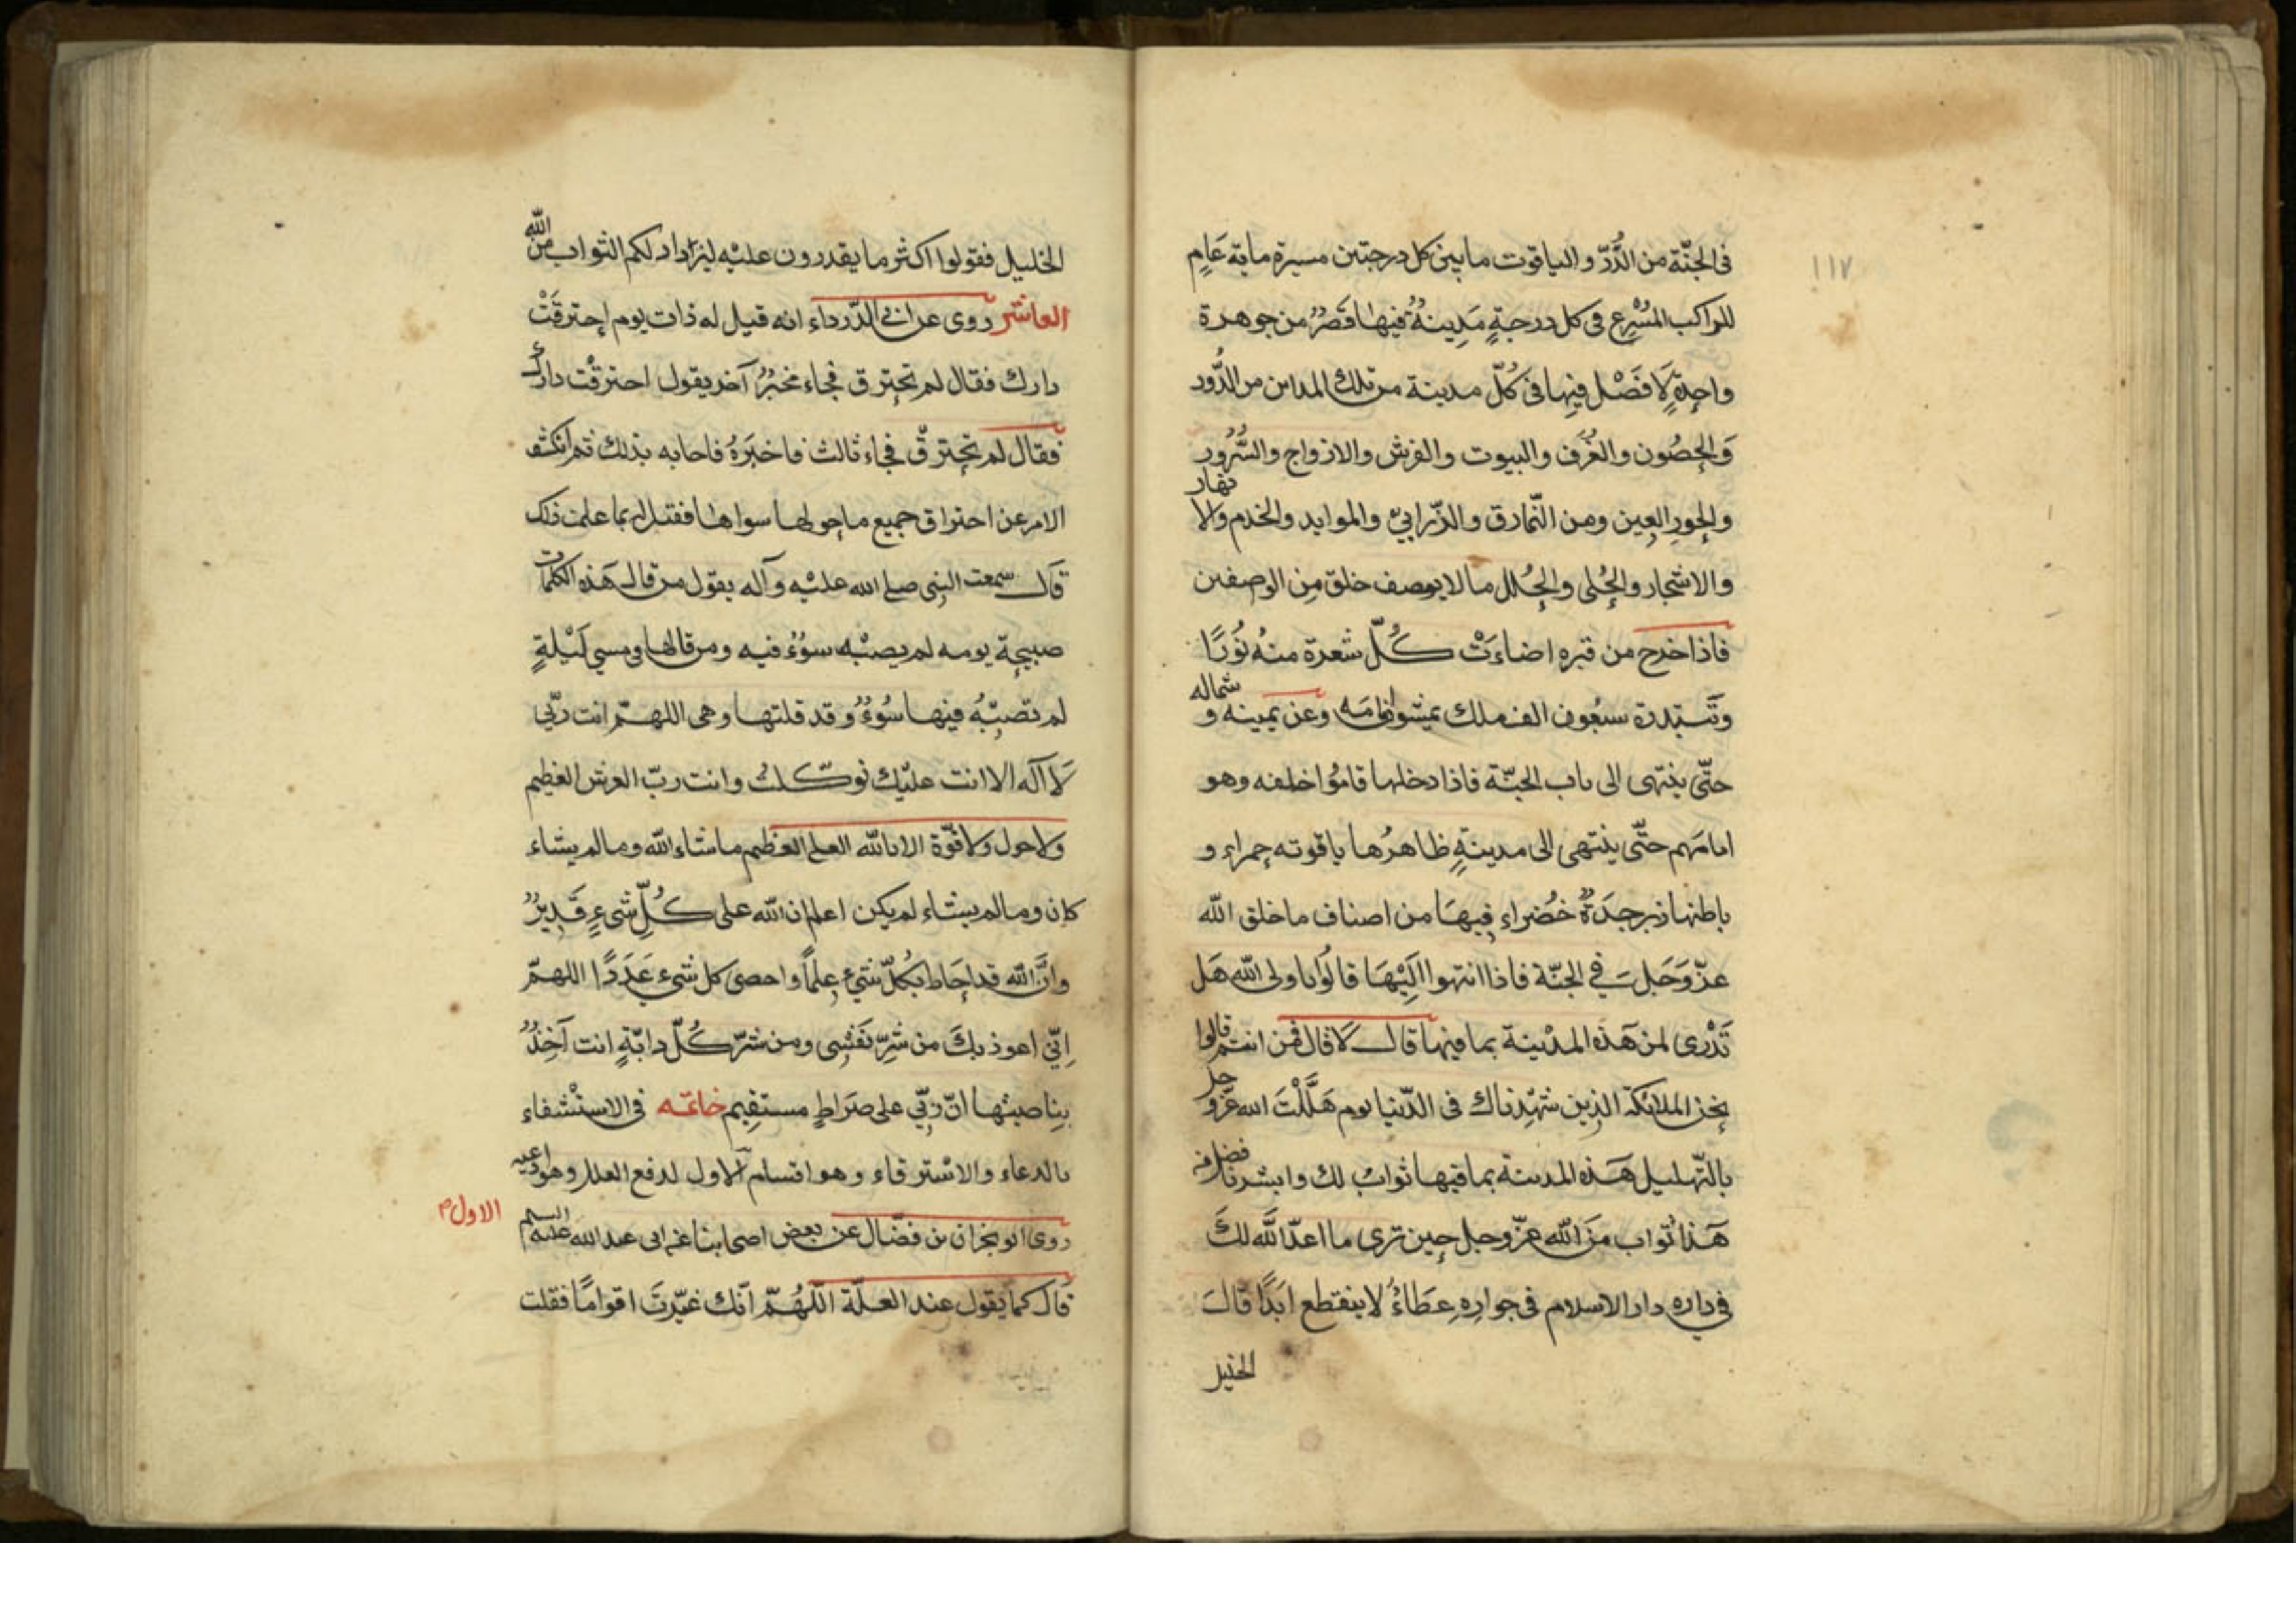 ١١٧
فى الجنّة من الدُّرّ والياقوت ما بين كل درجتين مسيرة ماية عَامٍ
للراكب المُسْرِع فى كل درجةٍ مَدِينةٌ فيها قَصْرٌ من جوهرة
واحِدةٍ لَا فَصْل فيها فى كُلّ مدينة من تلك المداين من الدُّور
وَالحِصُون والغُرَف والبيوت والفرش والازواج والسُّرُور
والحور العِين ومن النّمارق والذّرابيّ والموايد والخدم والانهار
والاشجار والحُلى والحُلل ما لا يوصف خلق مِن الوصفين
فاذا خرج من قبره اضاءَتْ كُلّ شعرة منهُ نُورًا
وتَبتدرة سبعُون الف ملك يمشون امامَه وعن يمينه وشماله
حتّى ينتهى الى باب الجنّة فاذا دخلها قامُوا خلفه وهو
امامَهم حتّى ينتهى الى مدينةٍ ظاهرُها ياقوته حمراء و
باطنها زبرجدَةٌ خُضراء فيهَا من اصناف ما خلق الله
عزّ وَجَلّ فى الجنّة فاذا انتهوا اليْهَا قالُوا يا ولى الله هَل
تَدْرى لمن هَذه المدْينة بما فيها قال لَا قال فمن انتم قالوا
نحن الملائكة الذين شهِدْناك فى الدّنيا يوم هَلَّلْتَ الله عزّ وجل
بالتّهليل هَذه المدينة بما فيها ثوابٌ لك وابشر فافضل من
هَذا ثواب مِنَ الله عزّ وجل حين ترى ما اعدّ اللَّه لكَ
فى داره دار الاسلام فى جوارِهِ عِطَاءٌ لا ينقطع ابَدًا قَالَ
الخليل
الخليل فقولوا اكثر ما يقدرون عليْه ليزداد لكم الثواب من الله
العاشر روى عن ابى الدّرداء انه قيل له ذات يوم احترقَتْ
دارك فقال لم تحترق فجاء مخبرٌ آخر يقول احترقْت دارك
فقال لم تحترقْ فجاء ثالث فاخبَرَهُ فاجابه بذلك ثم انكشف
الامر عن احتراق جميع ما حولها سواها فقيل له بما علمت ذلك
قال سمعت النبى صلى الله عليْه وآله يقول من قال هَذه الكلمات
صبيحِة يومه لم يصبْه سوُءٌ فيه ومن قالها فى مسى لَيْلةٍ
لم تصبْهُ فيها سُوُءٌ وقد قلتها وهى اللهمّ انت ربّى
لَا آله الا انت عليْك توكّلت وانت ربّ العرش العظيم
ولا حول ولا قوّة الا بالله العلى العظيم ما شاء الله وما لم يشاء
كان وما لم يشاء لم يكن اعلم ان الله على كُلّ شىءٍ قَدِيرٌ
وانَّ الله قد احَاط بكُلّ شىءٍ عِلمًا واحصى كل شىءٍ عَدَدًا اللهمّ
اِنّى اعوذ بكَ من شرِّ نَفسِى ومن شرّ كُلّ دابّةٍ انت آخِذٌ
بناصيتها انّ ربّى على صَراطٍ مستقِيم خاتمه فى الاستْشفاء
بالدعاء والاسْترقاء وهو اقسام الاول لدفع العلل وهو ادعيه
الاول م
روى ابو نجران بن فضّال عن بعض اصحابنا عن ابى عبد الله عليه السلم
قال كما يقول عند العلّة اللّهُمّ انّك عيّرتَ اقوامًا فقلت